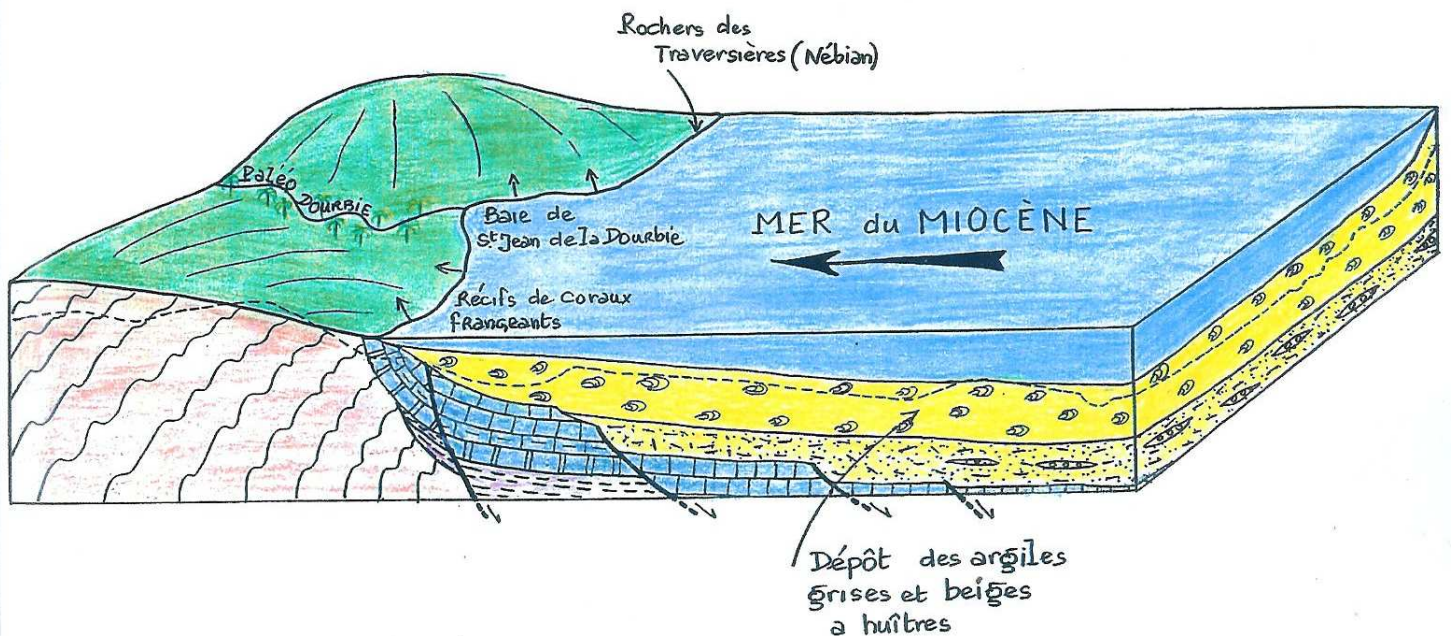 Rochers des
Traversières (Nébian)
Paléo
DOURBIE
Baie de
St Jean de la Dourbie
MER du MIOCÈNE
Récifs de coraux
frangeants
Dépôt des argiles
grises et beiges
a huîtres